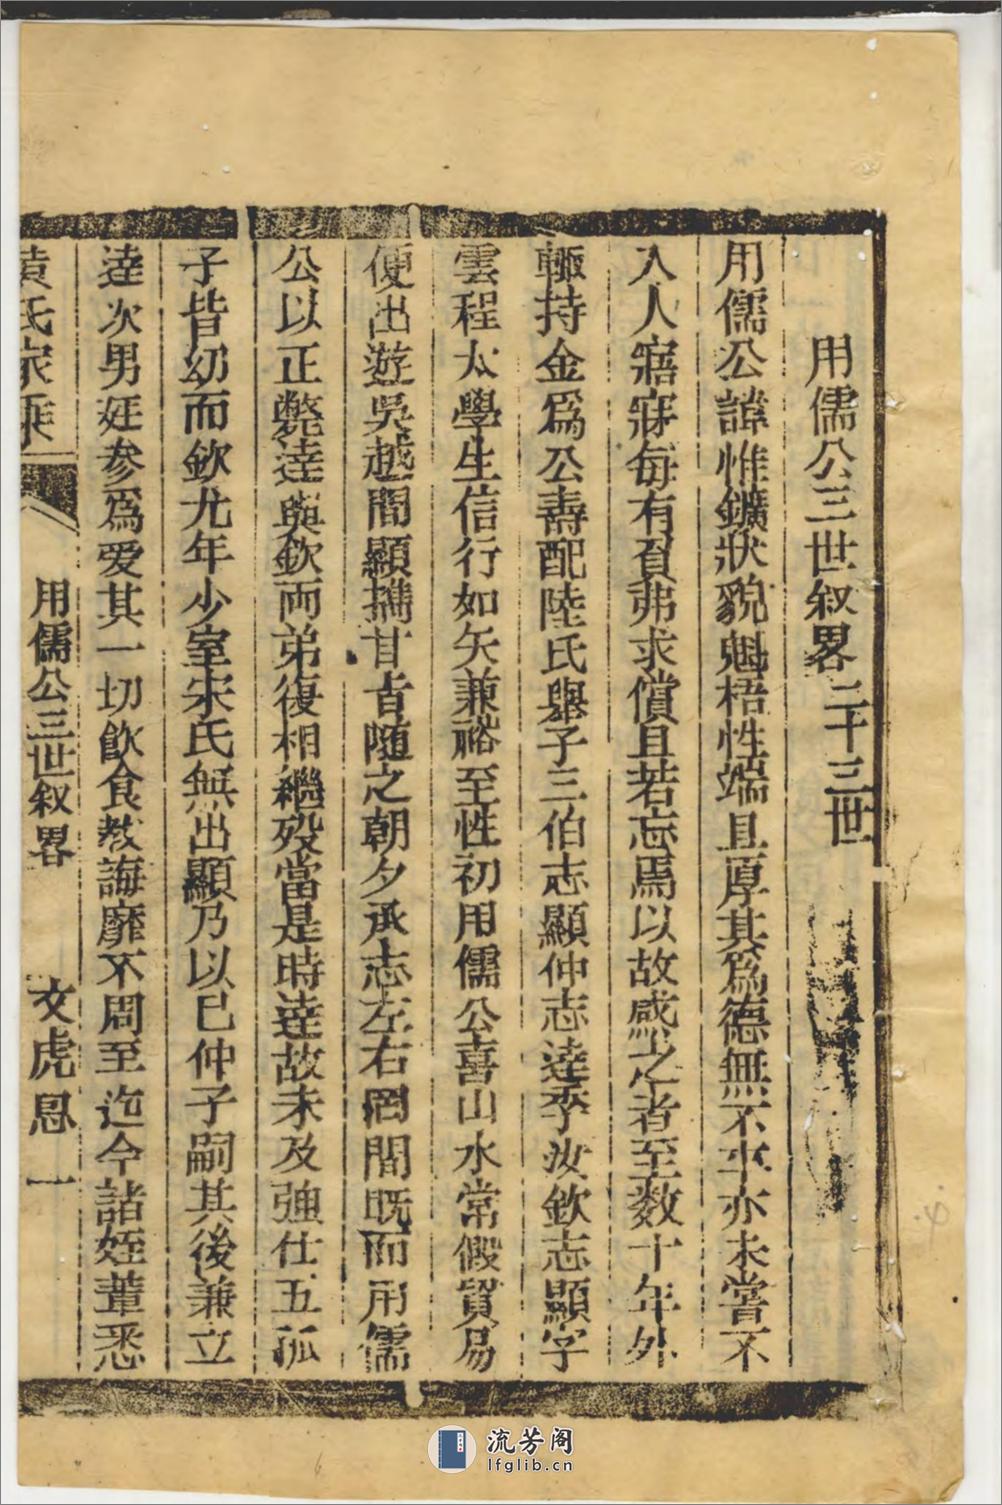 用儒公三世叙畧二十三世
用儒公諱惟鑛狀貌魁梧性端且厚其爲德無不卒亦未嘗不
入人寤寐每有負弗求償且若忘焉以故感之者至数十年外
輙持金爲公壽配陸氏舉子三伯志顯仲志逵季汝欽志顯字
雲程太學生信行如矢兼裕至性初用儒公喜山水常假貿易
便出遊吳越間顯攜甘旨随之朝夕承志左右罔間既而用儒
公以正斃逵與欽两弟復相繼殁當是時逵故未及強仕五孤
子皆幼而欽尤年少室宋氏無出顯乃以已仲子嗣其後兼立
逵次男姃参爲爱其一切飲食教誨靡不周至迄今諸姪輩悉
黄氏家乘
用儒公三世叙畧
文虎恩 一
流芳阁
lfglib.cn